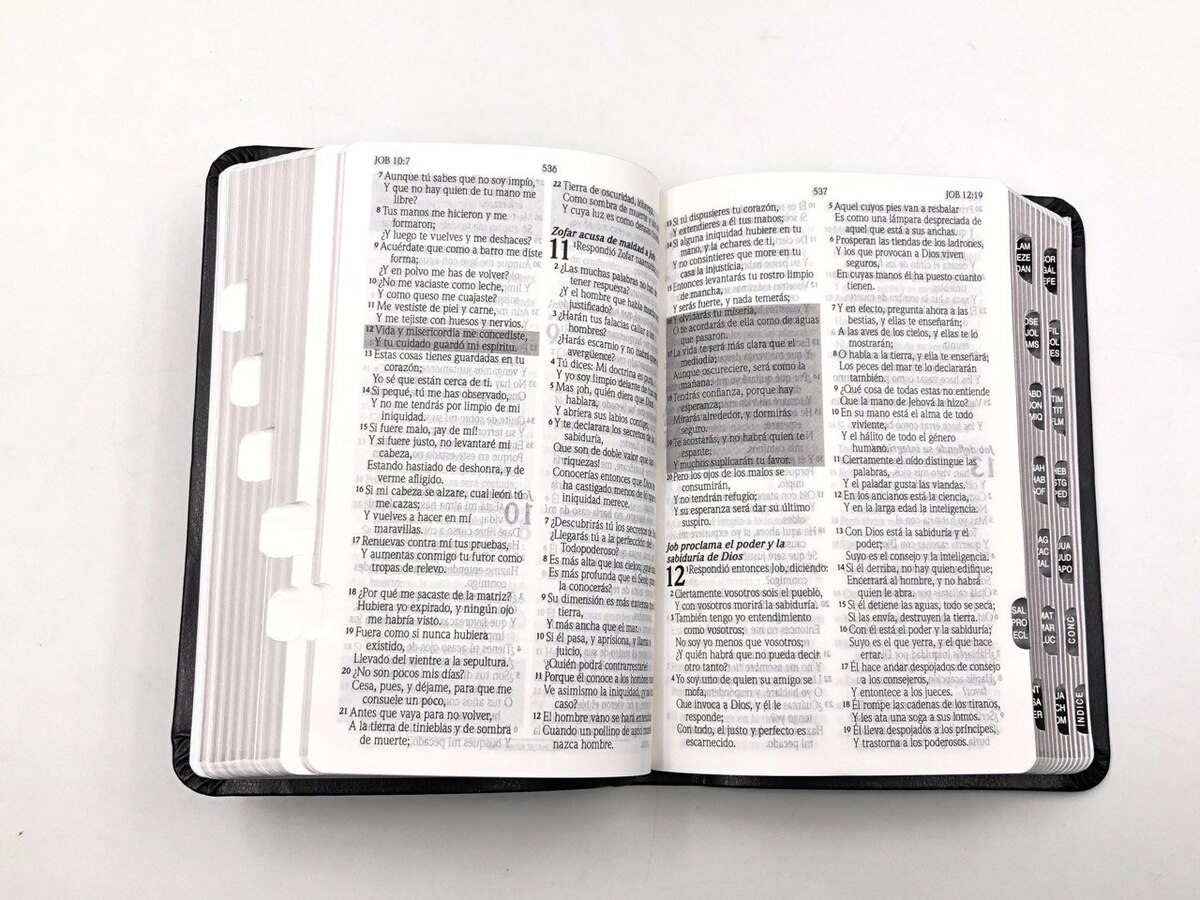 JOB 10:7
536
7 Aunque tú sabes que no soy impío,
Y que no hay quien de tu mano me
libre?
8 Tus manos me hicieron y me
formaron;
¿Y luego te vuelves y me deshaces?
9 Acuérdate que como a barro me diste
forma;
¿Y en polvo me has de volver?
10 ¿No me vaciaste como leche,
Y como queso me cuajaste?
11 Me vestiste de piel y carne,
Y me tejiste con huesos y nervios.
12 Vida y misericordia me concediste,
Y tu cuidado guardó mi espíritu.
13 Estas cosas tienes guardadas en tu
corazón;
Yo sé que están cerca de ti.
14 Si pequé, tú me has observado,
Y no me tendrás por limpio de mi
iniquidad.
15 Si fuere malo, ¡ay de mí!
Y si fuere justo, no levantaré mi
cabeza,
Estando hastiado de deshonra, y de
verme afligido.
16 Si mi cabeza se alzare, cual león tú
me cazas;
Y vuelves a hacer en mí
maravillas.
17 Renuevas contra mí tus pruebas,
Y aumentas conmigo tu furor como
tropas de relevo.
18 ¿Por qué me sacaste de la matriz?
Hubiera yo expirado, y ningún ojo
me habría visto.
19 Fuera como si nunca hubiera
existido,
Llevado del vientre a la sepultura.
20 ¿No son pocos mis días?
Cesa, pues, y déjame, para que me
consuele un poco,
21 Antes que vaya para no volver,
A la tierra de tinieblas y de sombra
de muerte;
22 Tierra de oscuridad,
Como sombra de muerte y
Y cuya luz es como
Zofar acusa de maldad a Job
11
1 Respondió Zofar
2 ¿Las muchas palabras no han
tener respuesta?
¿Y el hombre que habla
justificado?
3 ¿Harán tus falacias callar a los
hombres?
¿Harás escarnio y no habrá
avergüence?
4 Tú dices: Mi doctrina es
Y yo soy limpio delante de
5 Mas ¡oh, quién diera que
hablara,
Y abriera sus labios contigo,
6 Y te declarara los secretos de la
sabiduría,
Que son de doble valor que las
riquezas!
Conocerías entonces que
ha castigado menos de
iniquidad merece.
7 ¿Descubrirás tú los secretos de
¿Llegarás tú a la perfección del
Todopoderoso?
8 Es más alta que los cielos;
Es más profunda que el Seol;
la conocerás?
9 Su dimensión es más extensa
tierra,
Y más ancha que el mar.
10 Si él pasa, y aprisiona, y llama a
juicio,
¿Quién podrá contrarrestarle?
11 Porque él conoce a los hombres
Ve asimismo la iniquidad, ¿y no
caso?
12 El hombre vano se hará
Cuando un pollino de asno
nazca hombre.
537
JOB 12:19
13 Si tú dispusieres tu corazón,
Y extendieres a él tus manos;
14 Si alguna iniquidad hubiere en tu
mano, y la echares de ti,
Y no consintieres que more en tu
casa la injusticia,
15 Entonces levantarás tu rostro limpio
de mancha,
Y serás fuerte, y nada temerás;
16 Y olvidarás tu miseria,
O te acordarás de ella como de aguas
que pasaron.
17 La vida te será más clara que el
mediodía;
Aunque oscureciere, será como la
mañana.
18 Tendrás confianza, porque hay
esperanza;
Mirarás alrededor, y dormirás
seguro.
19 Te acostarás, y no habrá quien te
espante;
Y muchos suplicarán tu favor.
20 Pero los ojos de los malos se
consumirán,
Y no tendrán refugio;
Y su esperanza será dar su último
suspiro.
Job proclama el poder y la
sabiduría de Dios
12
1 Respondió entonces Job, diciendo:
2 Ciertamente vosotros sois el pueblo,
Y con vosotros morirá la sabiduría.
3 También tengo yo entendimiento
como vosotros;
No soy yo menos que vosotros;
¿Y quién habrá que no pueda decir
otro tanto?
4 Yo soy uno de quien su amigo se
mofa,
Que invoca a Dios, y él le
responde;
Con todo, el justo y perfecto es
escarnecido.
5 Aquel cuyos pies van a resbalar
Es como una lámpara despreciada de
aquel que está a sus anchas.
6 Prosperan las tiendas de los ladrones,
Y los que provocan a Dios viven
seguros,
En cuyas manos él ha puesto cuanto
tienen.
7 Y en efecto, pregunta ahora a las
bestias, y ellas te enseñarán;
A las aves de los cielos, y ellas te lo
mostrarán;
8 O habla a la tierra, y ella te enseñará;
Los peces del mar te lo declararán
también.
9 ¿Qué cosa de todas estas no entiende
Que la mano de Jehová la hizo?
10 En su mano está el alma de todo
viviente,
Y el hálito de todo el género
humano.
11 Ciertamente el oído distingue las
palabras,
Y el paladar gusta las viandas.
12 En los ancianos está la ciencia,
Y en la larga edad la inteligencia.
13 Con Dios está la sabiduría y el
poder;
Suyo es el consejo y la inteligencia.
14 Si él derriba, no hay quien edifique;
Encerrará al hombre, y no habrá
quien le abra.
15 Si él detiene las aguas, todo se seca;
Si las envía, destruyen la tierra.
16 Con él está el poder y la sabiduría;
Suyo es el que yerra, y el que hace
errar.
17 Él hace andar despojados de consejo
a los consejeros,
Y entontece a los jueces.
18 Él rompe las cadenas de los tiranos,
Y les ata una soga a sus lomos.
19 Él lleva despojados a los príncipes,
Y trastorna a los poderosos.
LAM
EZE
DAN
COR
GÁL
EFE
OSE
JOL
AMS
FIL
COL
TES
ABD
JON
MIQ
TIM
TIT
FLM
NAH
HAB
SOF
HEB
STG
PED
HAG
ZAC
MAL
JUA
JUD
APO
SAL
PRO
ECL
MAT
MAR
LUC
CONC
INDICE